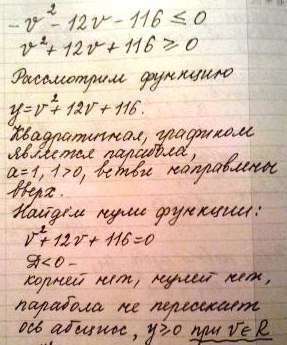 -v² - 12v - 116 ≤ 0
v² + 12v + 116 ≥ 0
Рассмотрим функцию
y = v² + 12v + 116.
Квадратичная, графиком
является парабола,
a=1, 1>0, ветви направлены
вверх.
Найдём нули функции:
v² + 12v + 116 = 0
D<0 -
корней нет, нулей нет,
парабола не пересекает
ось абсцисс, y≥0 при v∈R